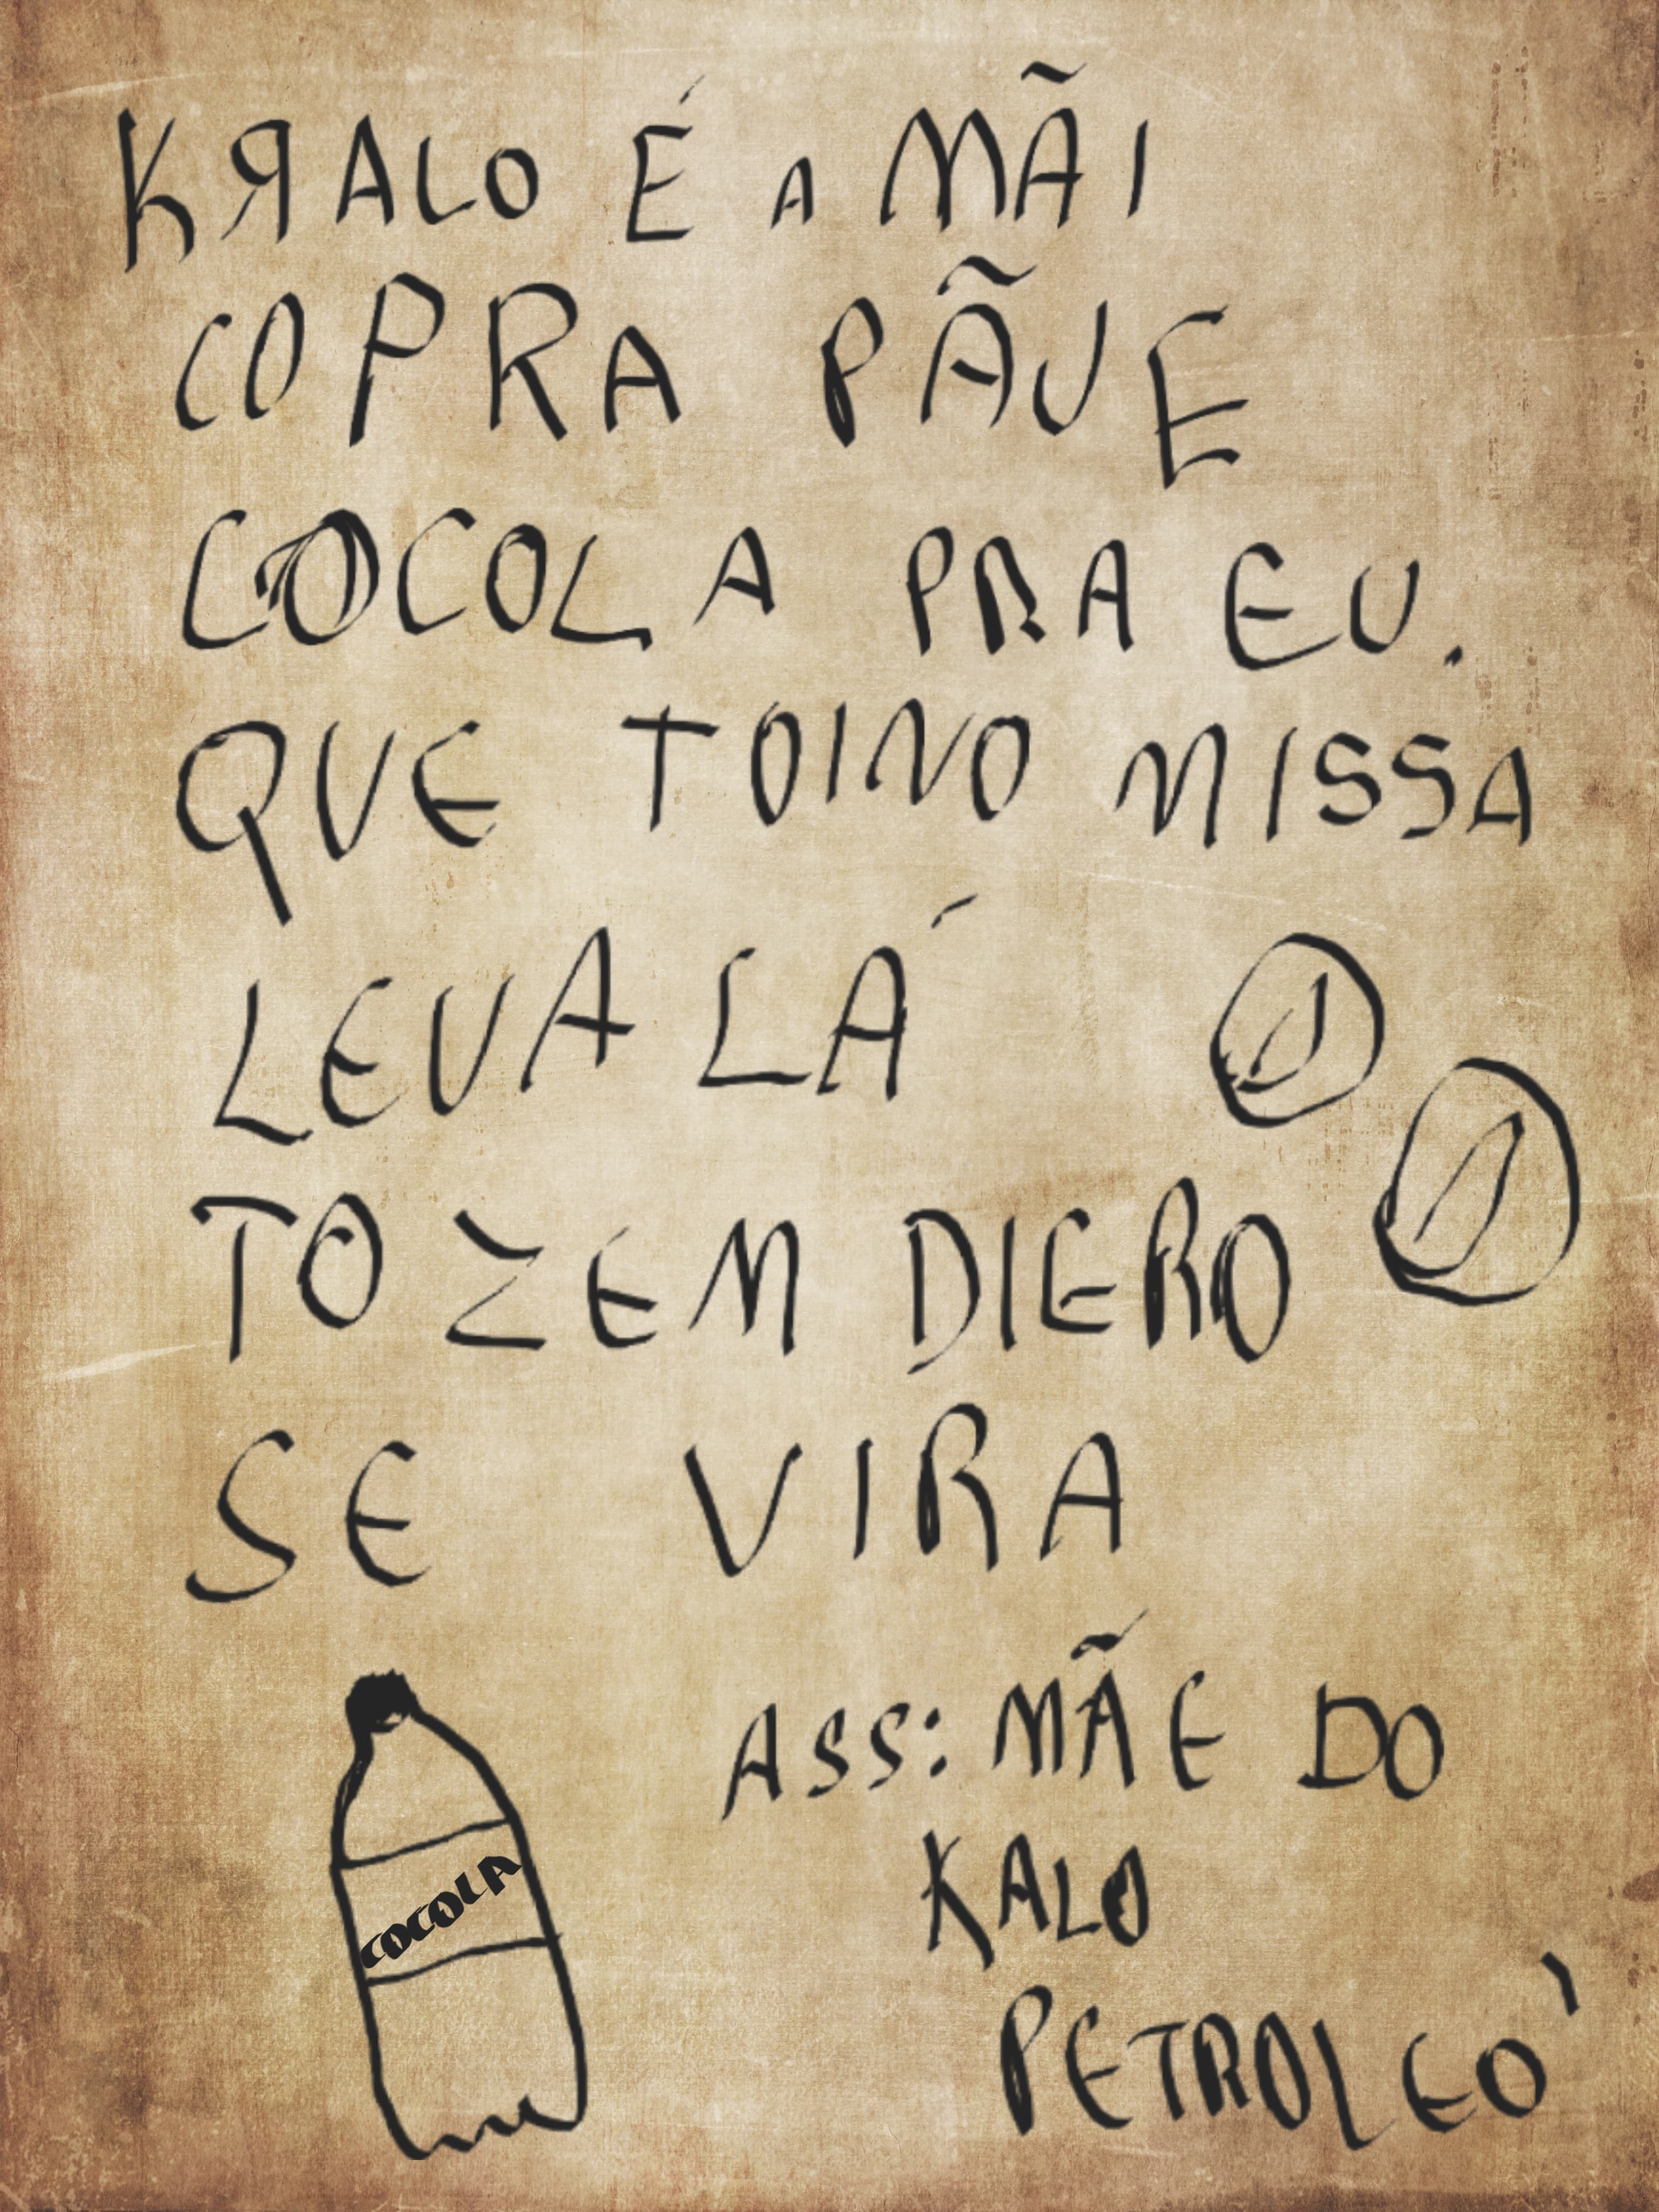 KRALO É A MÃI
COPRA PÃUE
COCOLA PRA EU.
QUE TOINO MISSA
LEVA LÁ
TO ZEM DIERO
SE VIRA
ASS: MÃE DO
KALO
PETROLEO'
COCOLA